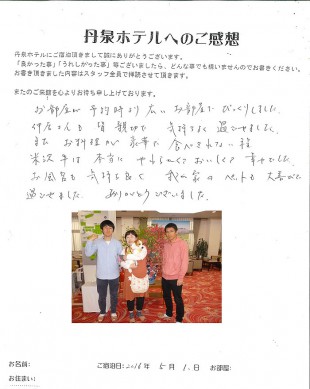 丹泉ホテルへのご感想
丹泉ホテルにご宿泊頂きまして誠にありがとうございます。
「良かった事」「うれしかった事」等ございましたら、どんな事でも構いませんのでお書きください。
お書き頂きました内容はスタッフ全員で拝読させて頂きます。
またのご来館を心よりお待ち申し上げております。
お部屋が予約時より広いお部屋でびっくりしました。
仲居さんも皆親切で気持ちよく過ごせました。
また お料理が豪華で食べきれない程
米沢牛は本当にやわらかくおいしくて幸せでした。
お風呂も気持ち良く 我が家のペットも大喜びで
過ごせました。ありがとうございました。
お名前:
ご宿泊日:2016年 5月 1日 お部屋:
お住まい: